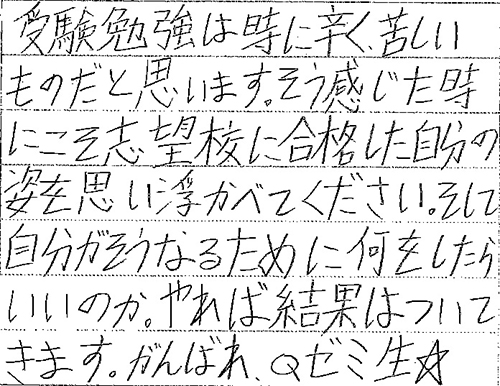 受験勉強は時に辛く、苦しい
ものだと思います。そう感じた時
にこそ志望校に合格した自分の
姿を思い浮かべてください。そして
自分がそうなるために何をしたら
いいのか。やれば結果はついて
きます。がんばれ、Qゼミ生☆